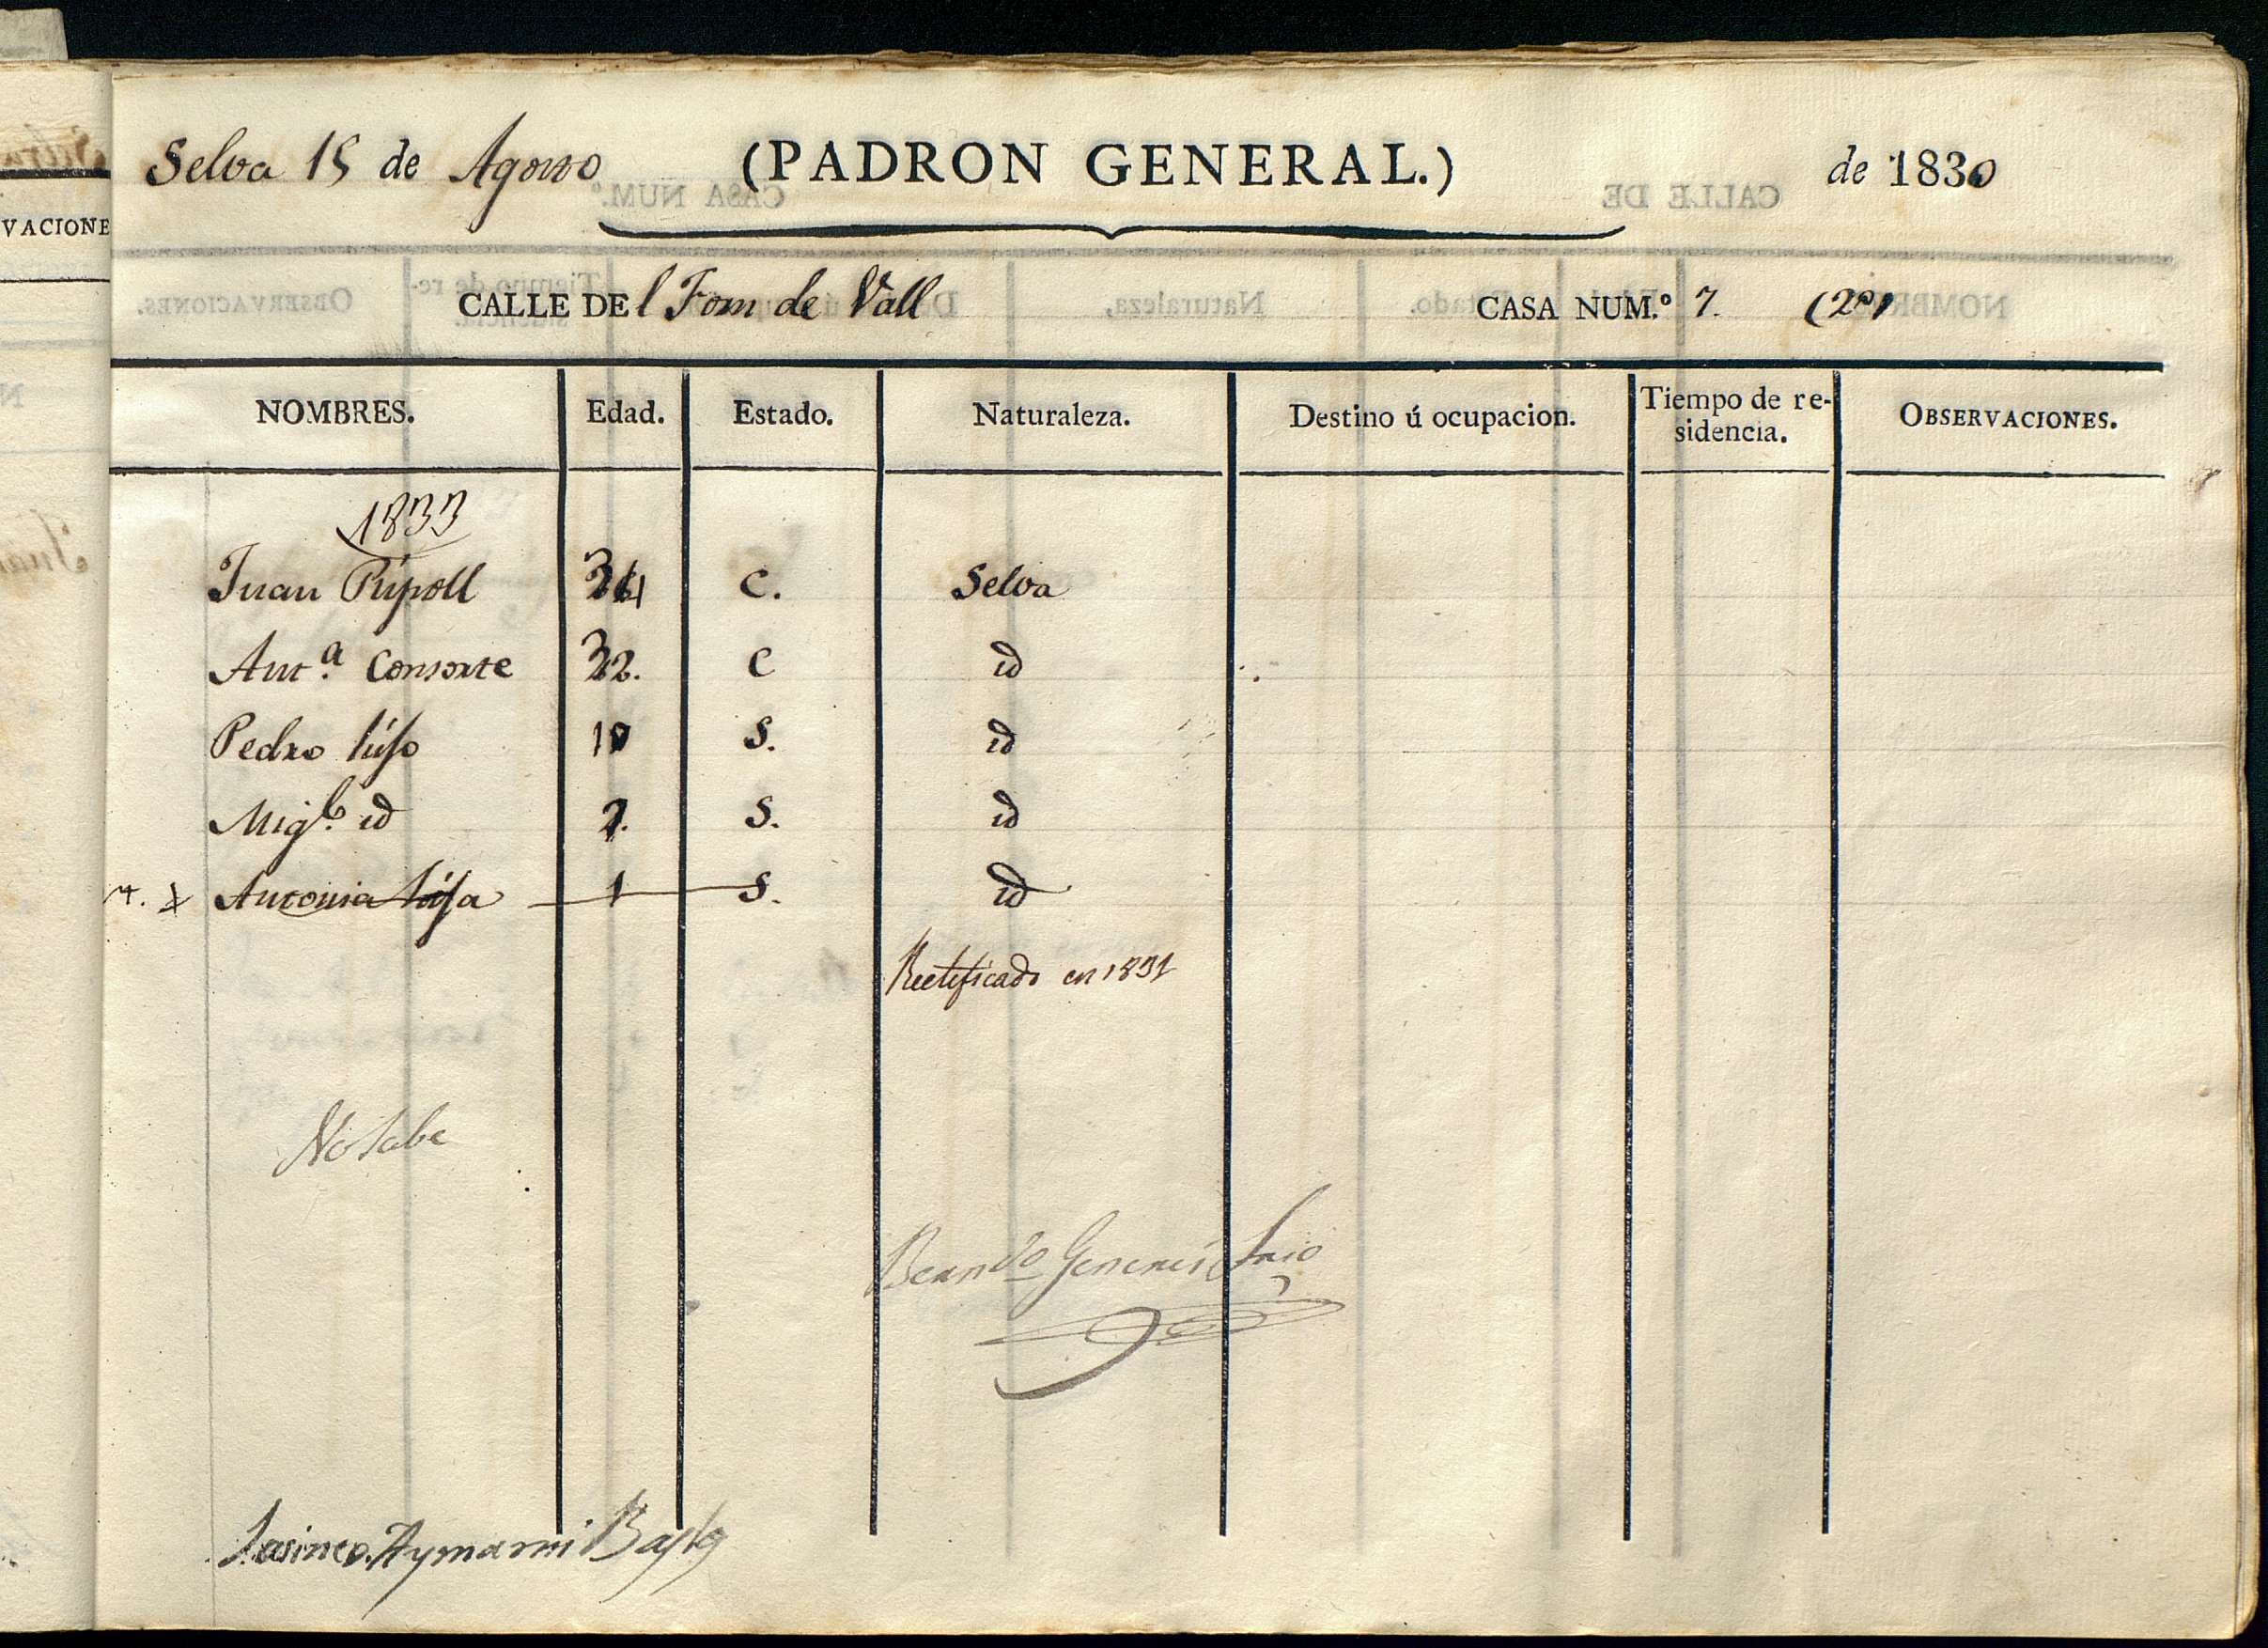 Selva 15 de Agosto (PADRON GENERAL.) de 1830
VACIONE
CALLE DEl Forn de Vall CASA NUM.º 7. (2º)
NOMBRES. Edad. Estado. Naturaleza. Destino ú ocupacion. Tiempo de re-
sidencia. OBSERVACIONES.
1833
Juan Ripoll C. Selva
Antª. Consorte 32. C id
Pedro hijo 10 S. id
Migl. id S. id
Antonia hija 1 S. id
Rectificado en 1831
No Sabe
Berndo Generes Srio
Jasinto Aymami Bayle